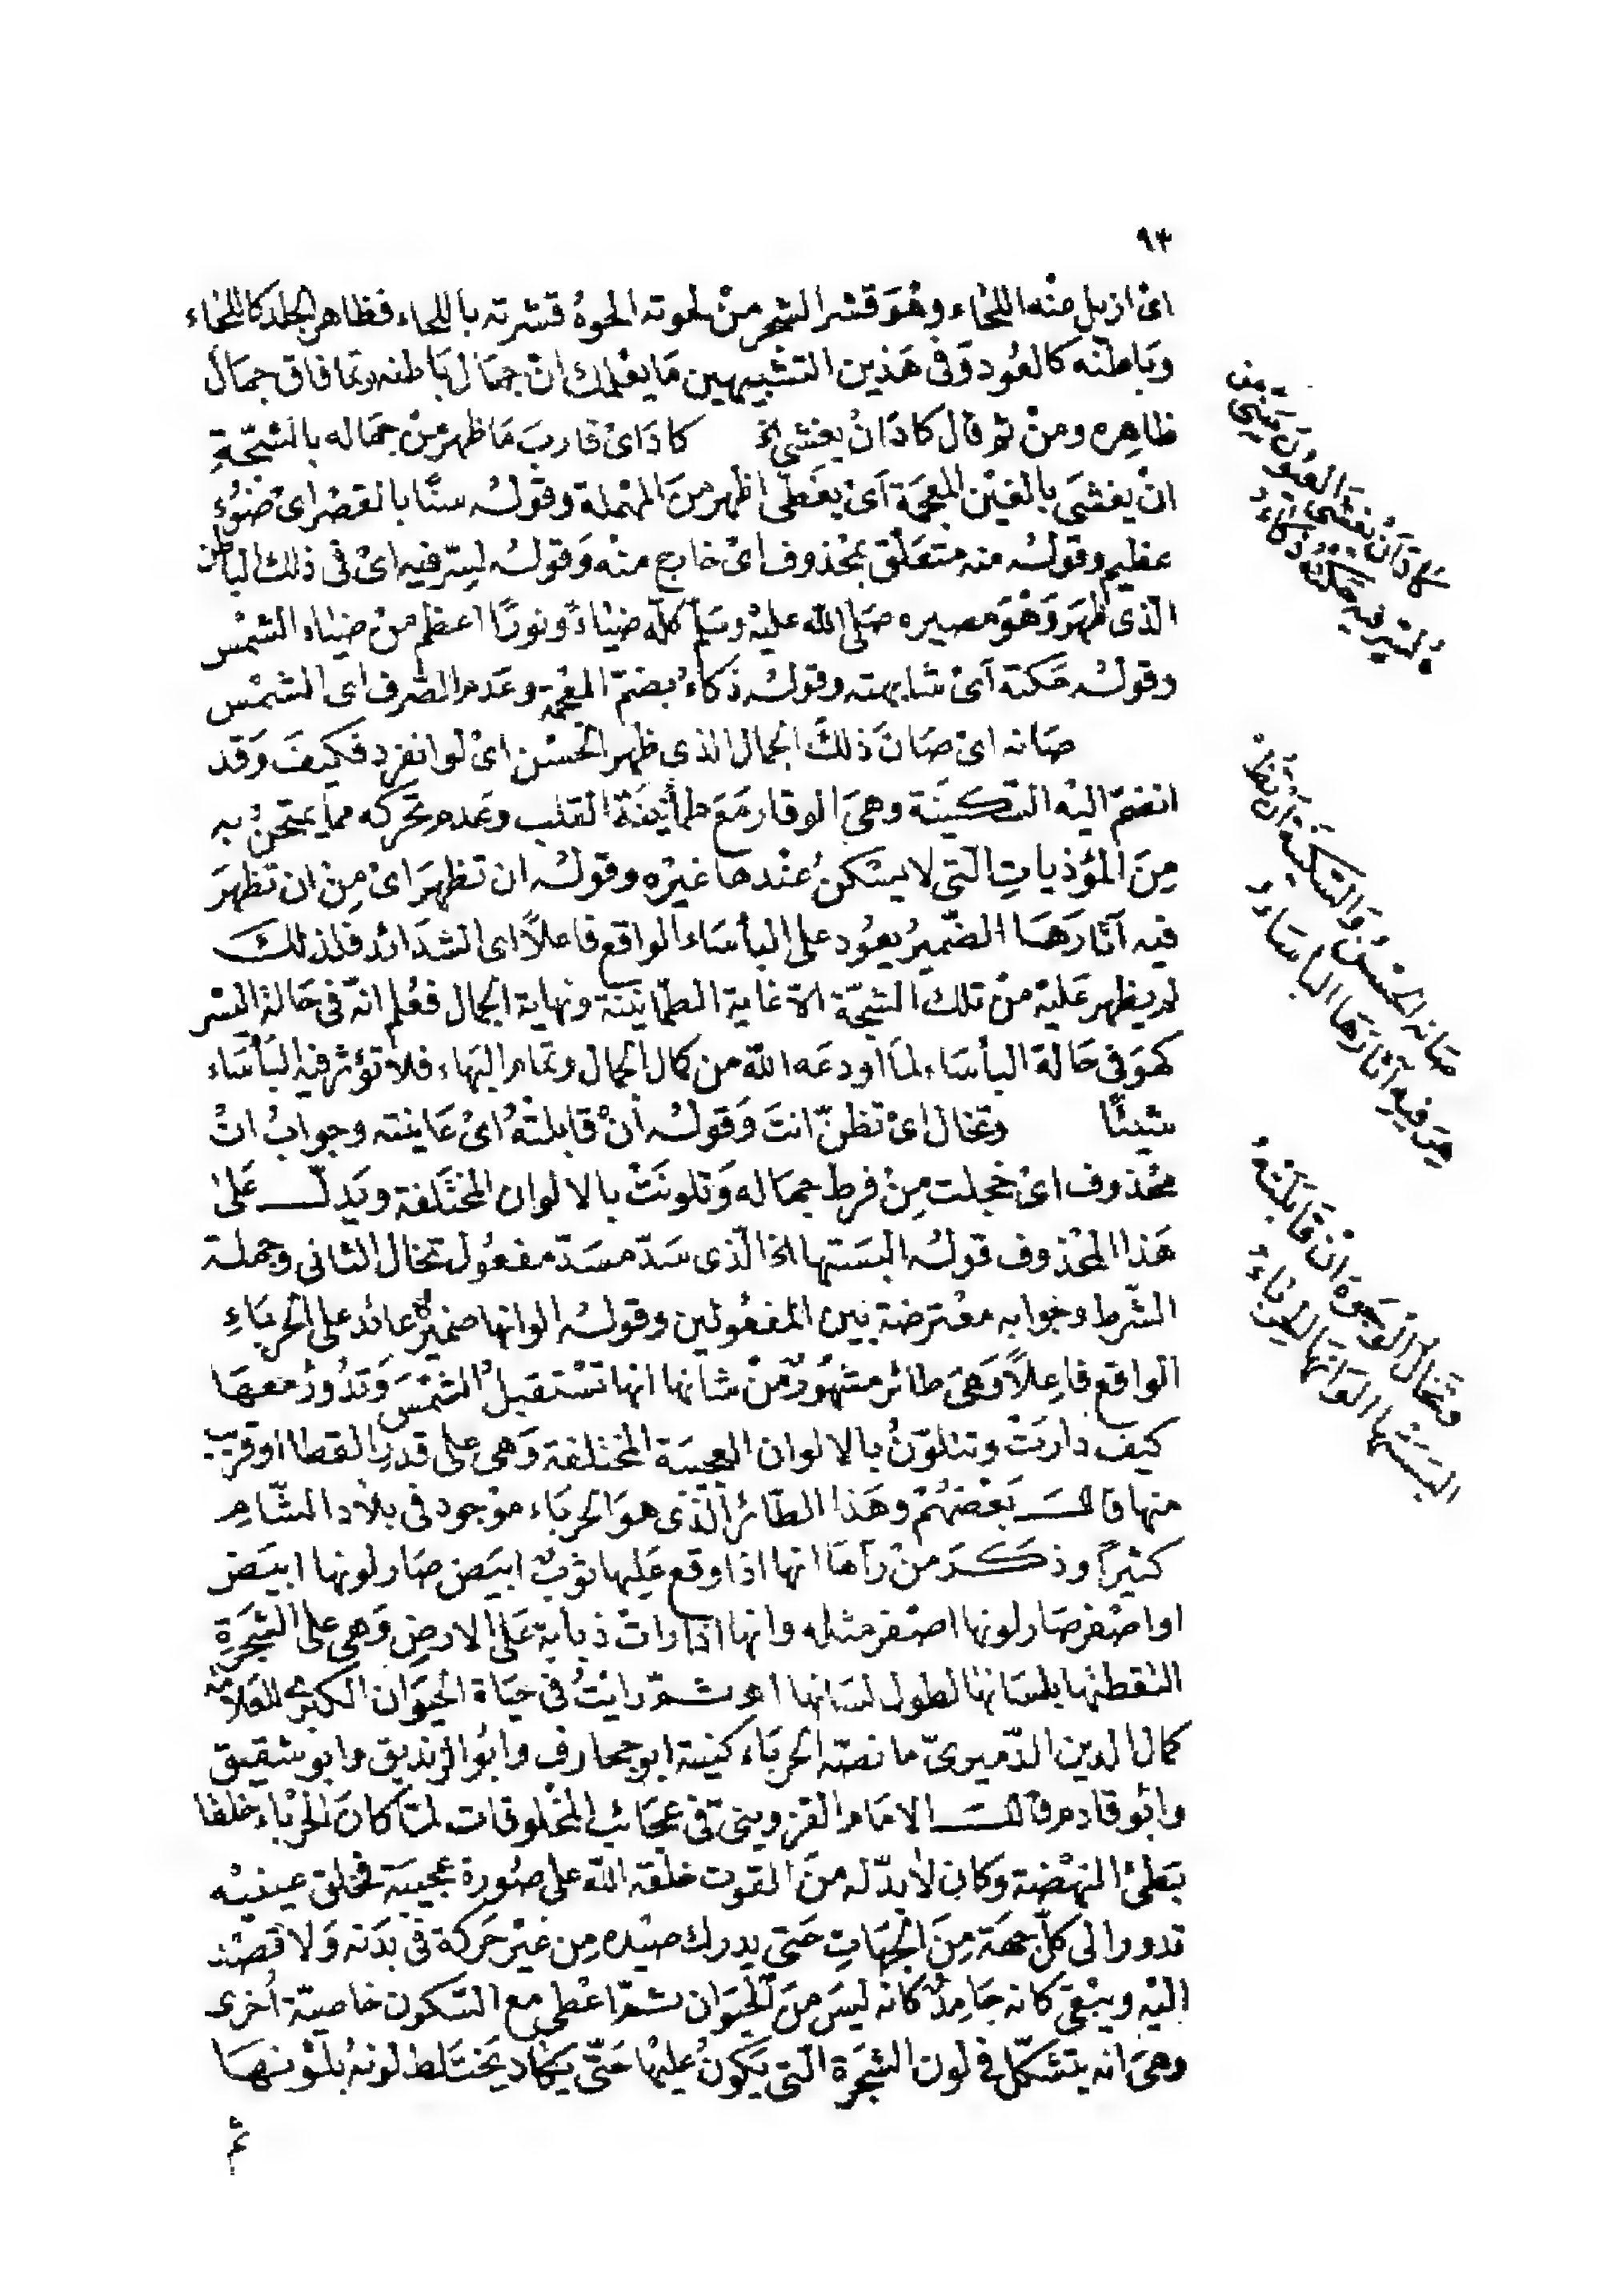 ٩٣
اى ازيل منه اللحاء وهو قشر الشجر من لحوته الحوهُ قشرته باللحاء فظاهر الجلد كاللحاء
وباطنه كالعود وفى هذين التشبيهين ما يعلمك ان جمال باطنه ربما فاق جمال
ظاهره ومن ثم قال كاد ان يغشى الخ كاد اى قارب ما ظهر من جماله بالشجّةِ
ان يغشى بالغين المعجمة اى يغطى اظهر من المهملة وقولـه سنًا بالقصر اى ضوءٌ
عظيم وقولـه منه متعلق بمحذوف اى خارج منه وقولـه لسرّ فيه اى فى ذلك الباطن
الذى ظهر وهو مصيره صلى الله عليه وسلم كلّه ضياءً ونورًا اعظم من ضياء الشمس
وقولـه حكته اى شابهته وقولـه ذكاءُ بضم المعجمة وعدم الصرف اى الشمس
صانه اى صان ذلك الجمال الذى ظهر الحسن اى لو انفرد فكيف وقد
انضمّ اليه السكينة وهى الوقار مع طمأنينة القلب وعدم تحركه مما يمتحن به
مِنَ المؤذياتِ التى لا يسكنُ عندها غيره وقولـه ان تظهر اى مِن ان تظهر
فيه آثارها الضميرُ يعود على البأساء الواقع فاعلاً اى الشدائد فلذلك
لم يظهر عليه من تلك الشجّة الا غاية الطمانينة ونهاية الجمال فعُلم انّه فى حالة اليسر
كهو فى حالة البأساء لما اودعه الله من كمال الجمال وتمام البهاء فلا تؤثر فيه البأساء
شيئًا وتخال اى تظنّ انت وقولـه ان قابلتهُ اى عاينته وجوابُ ان
محذوف اى خجلت مِن فرط جماله وتلونت بالالوان المختلفة ويدل على
هذا المحذوف قولـه البستها الخ الذى سدّ مسدّ مفعول تخال الثانى وجملة
الشرط وجوابه معترضة بين المفعولين وقولـه الوانها ضميره عائد على الحرباءِ
الواقع فاعلاً وهى طائر مشهُورٌ من شانها انها تستقبلُ الشمس وتدُورُ معها
كيف دارت وتتلوّنُ بالالوان العجيبة المختلفة وهى على قدر القطا او قريب
منها قال بعضهم وهذا الطائر الذى هو الحرباء موجود فى بلاد الشّام
كثيرًا وذكر من رآها انها اذا وقع عليها ثوبٌ ابيض صار لونها ابيض
او اصفر صار لونها اصفر مثله وانها اذا رات ذبابة على الارض وهى على الشجرةِ
التقطتها بلسانها لطول لسانها اهـ ثمّ رايتُ فى حياة الحيوان الكبرى للعلامة
كمال الدين الدّميرىّ ما نصّه الحرباء كنيته ابو جحارف وابو الزنديق وابو شقيق
وابو قادم قال الامام القزوينىّ فى عجائب المخلوقات لمّا كان الحرباء خلقا
بطئ النهضة وكان لا بدّ له من القوت خلقه الله على صورة عجيبة فخلق عينيه
تدور الى كلّ جهة مِنَ الجهاتِ حتى يدرك صيده مِن غير حركة فى بدنه ولا قصد
اليه ويبقى كانه جامِدٌ كانه ليس من الحيوان ثمّ اعطى مع السكون خاصيّة أخرى
وهى انه يتشكّل فى لون الشجرة التى يكونُ عليها حتّى يكاد يختلط لونهُ بلونها
ثم
كاد أن يغشى العيون سنًى من
ـه لسرّ فيه حكته ذكاءُ
صانه الحسنُ والسكينة أن تظـ
ـهر فيه آثارها البأساءُ
وتخال الوجوه ان قابلتهُ
البستها الوانها الحرباءُ